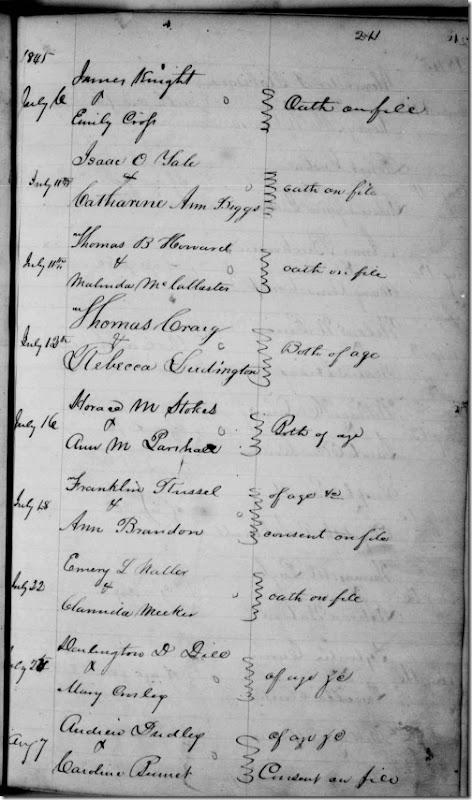 24
1845
James Knight
July 6 & Oath on file
Emily Cross
Isaac O Yale
July 11th & oath on file
Catharine Ann Beggs
Thomas B Howard
July 11th & oath on file
Malinda McCallaster
Thomas Craig
July 12th & Both of age
Rebecca Ludington
Horace M Stokes
July 16 & Both of age
Ann M Parshall
Franklin Russel of age &c
July 18 &
Ann Brandon consent on file
Emery L
July 22 & oath on file
Meeker
Darlington D Dill
July & of age &c
Mary
Andrew Dudley of age &c
Aug 7 &
Caroline Consent on file